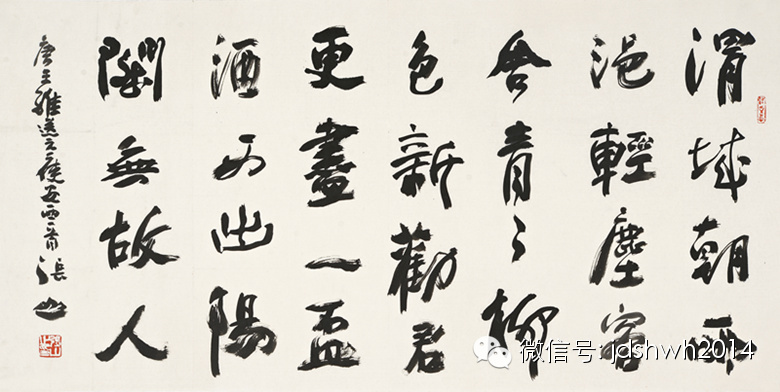 渭城朝雨
浥輕塵客
舍青々柳
色新勸君
更盡一盃
酒西出陽
關無故人
唐王維送元二使安西一首 張山
微信号: jdshwh2014